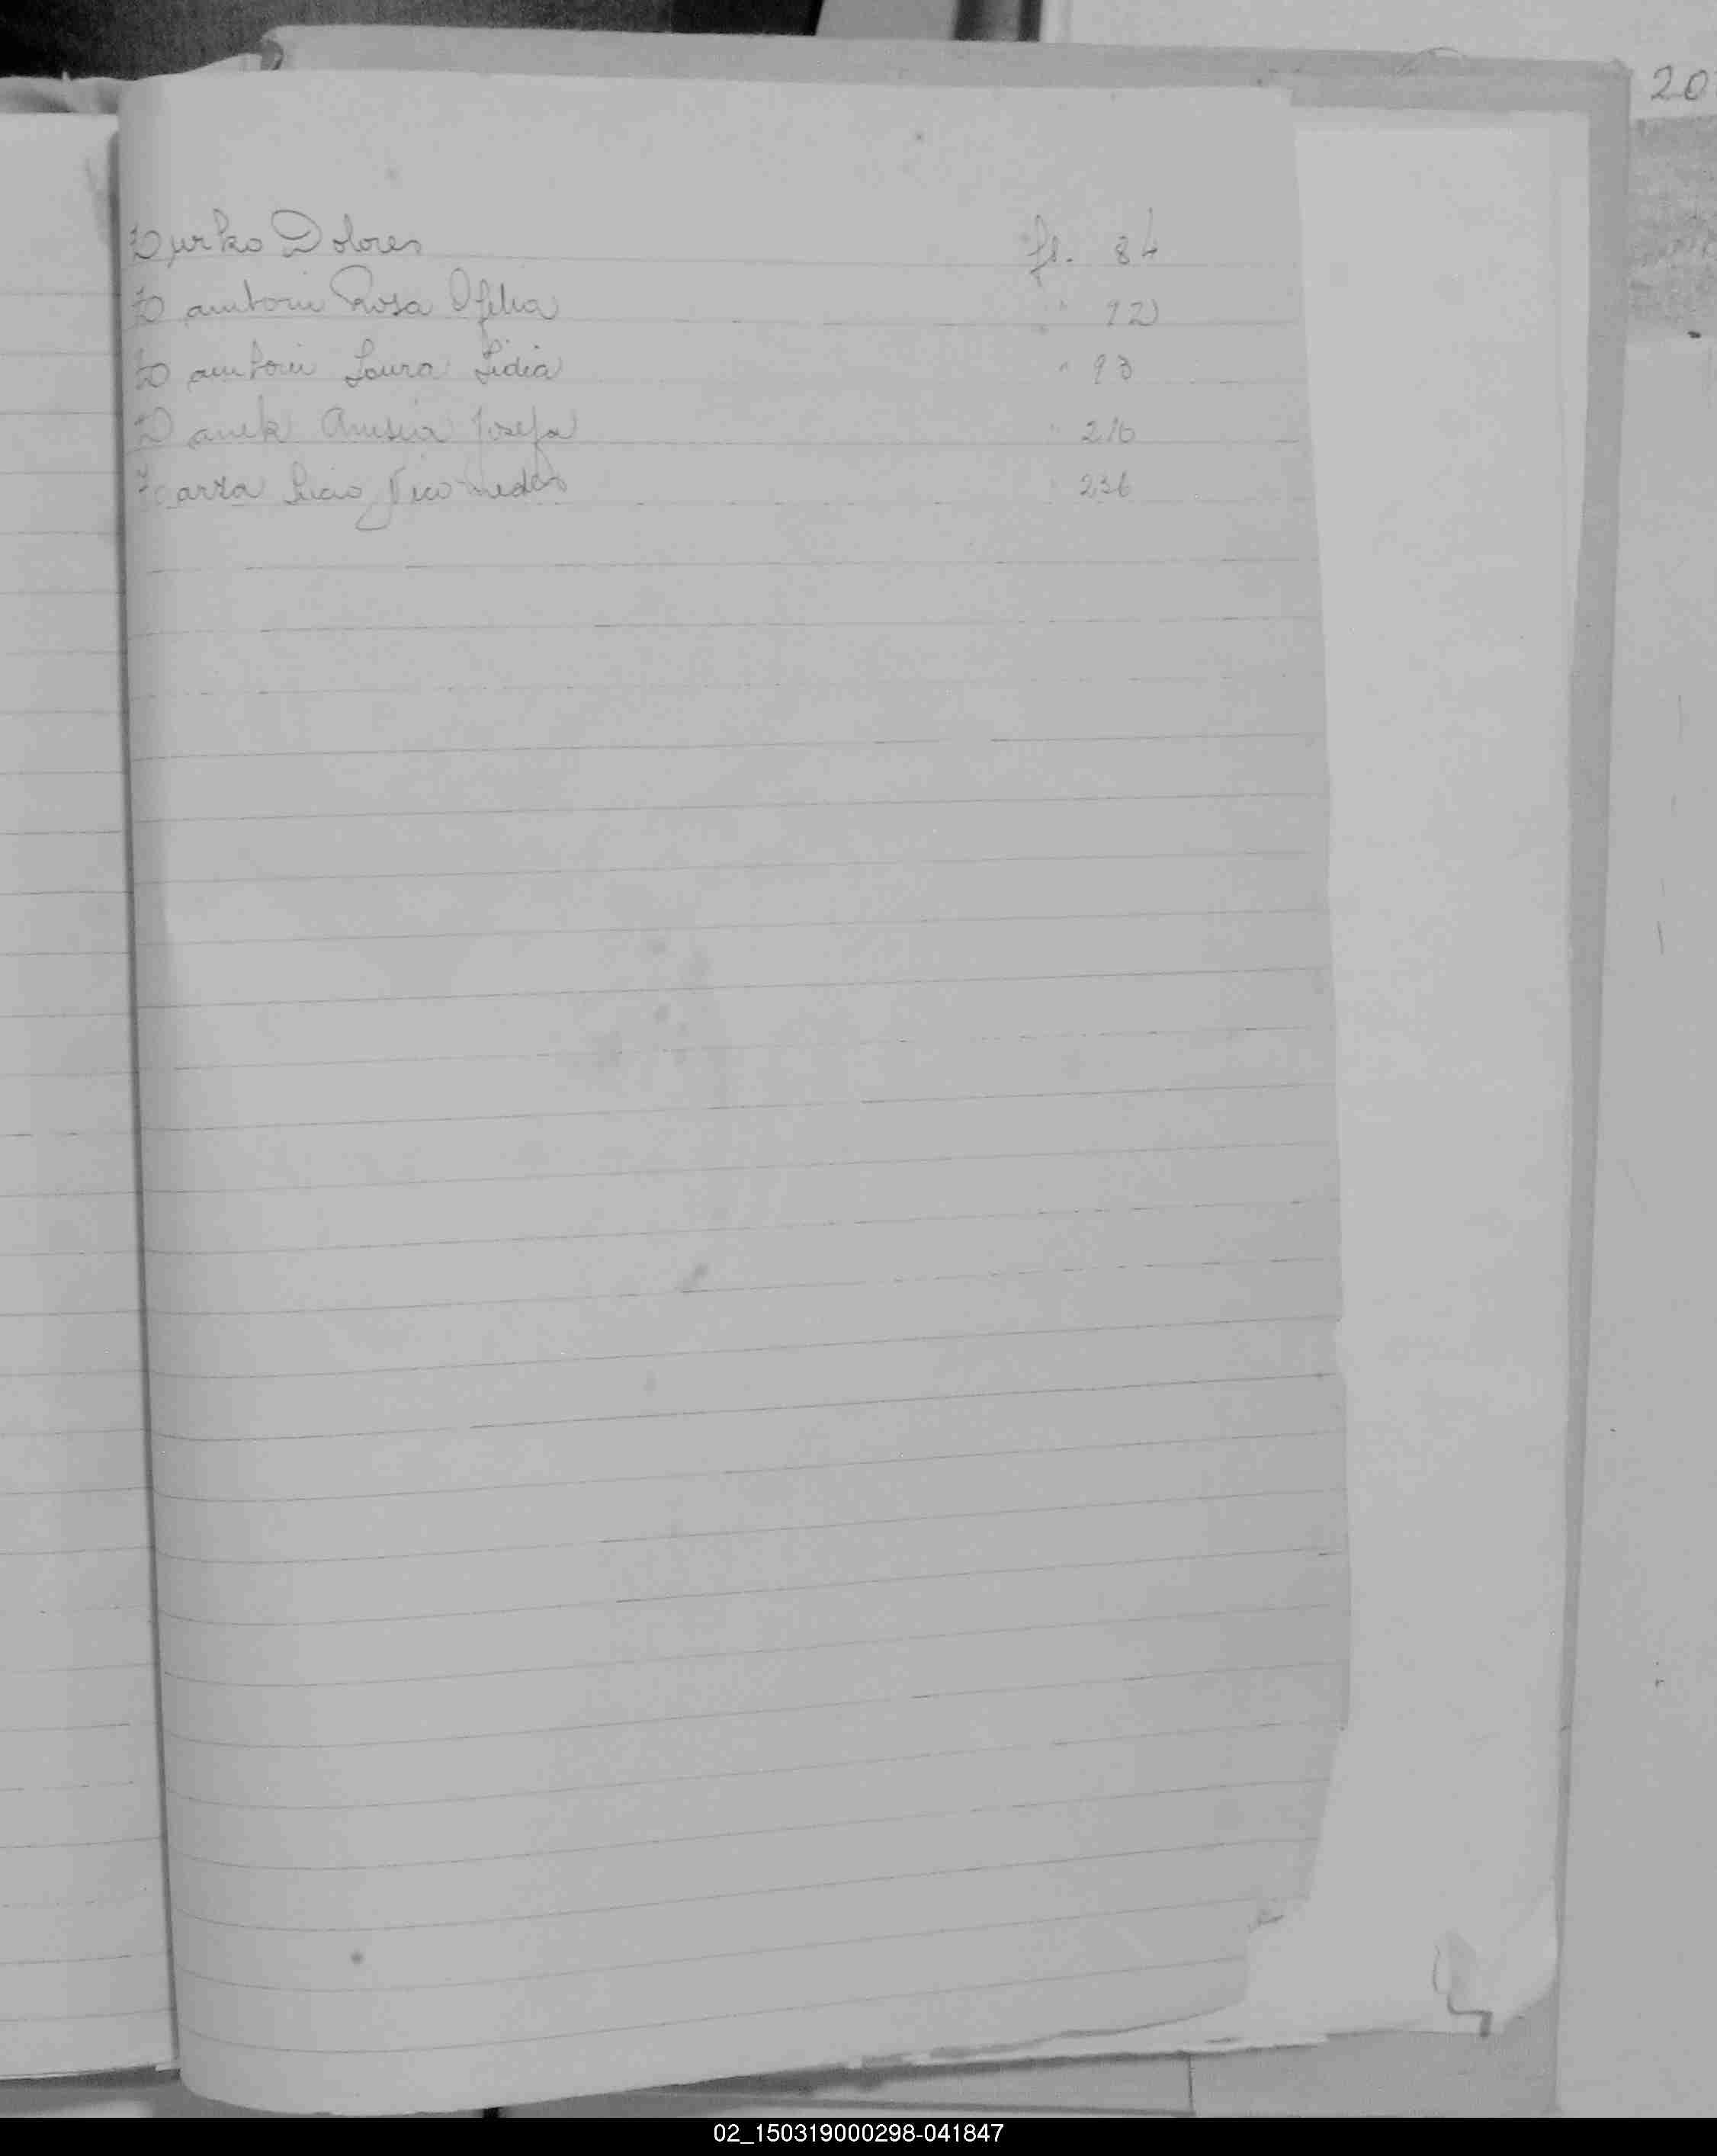 20
Zurko Dolores fl. 84
Zamboni Rosa Ofelia " 92
Zamboni Laura Lidia " 93
Zanek Josefa " 216
Zarza Nicomedes 236
02_150319000298-041847